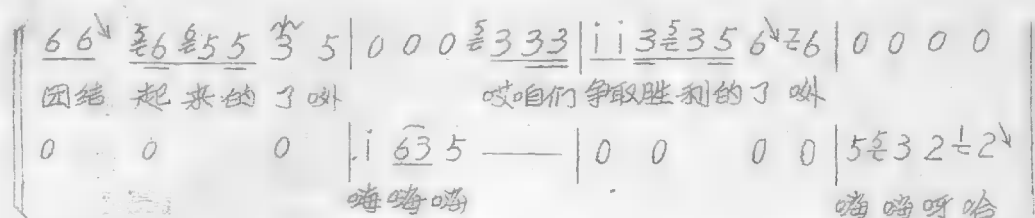 6 6 5 6 6 5 5 3 5 | 0 0 0 5 3 3 3 | i i 3 5 3 5 6 7 6 | 0 0 0 0
团结 起来的了哟 哎咱们争取胜利的了哟
0 0 0 | i 6 3 5 — | 0 0 0 0 | 5 5 3 2 1 2
嗨嗨嗨 嗨嗨呀哈